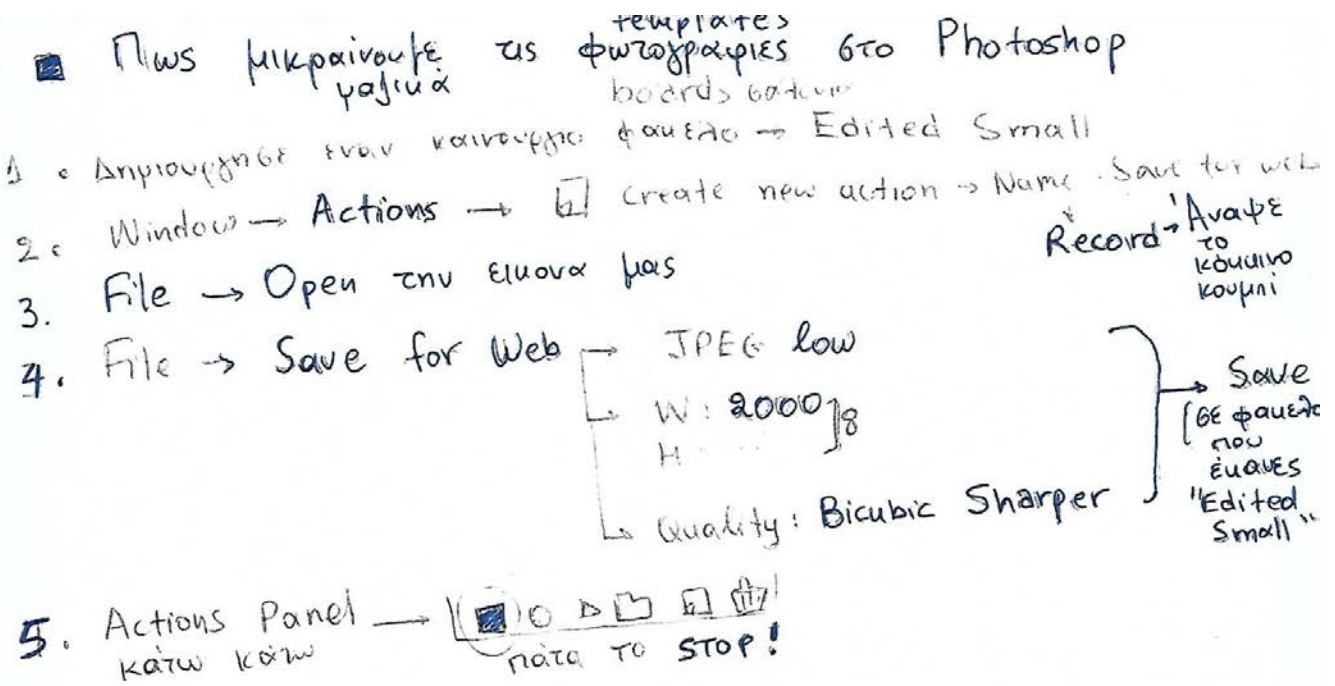 templates
Πως μικραίνουμε τις φωτογραφιες στο Photoshop
μαζικά
boards
1. Δημιουργησε εναν καινουργιο φακελο → Edited Small
2. Window → Actions → create new action → Name: Save for web
Record → Άναψε
το
κόκκινο
κουμπί
3. File → Open την εικονα μας
4. File → Save for Web → JPEG low
W: 2000
H
Quality: Bicubic Sharper
→ Save
(σε φακελο
που
έκανες
"Edited
Small"
5. Actions Panel →
κάτω κάτω
πάτα το STOP!